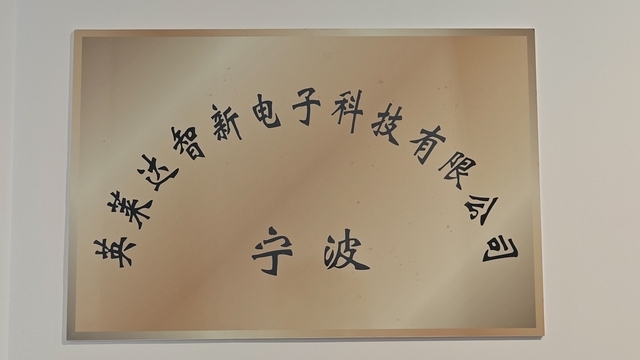 英莱达智新电子科技有限公司
宁波